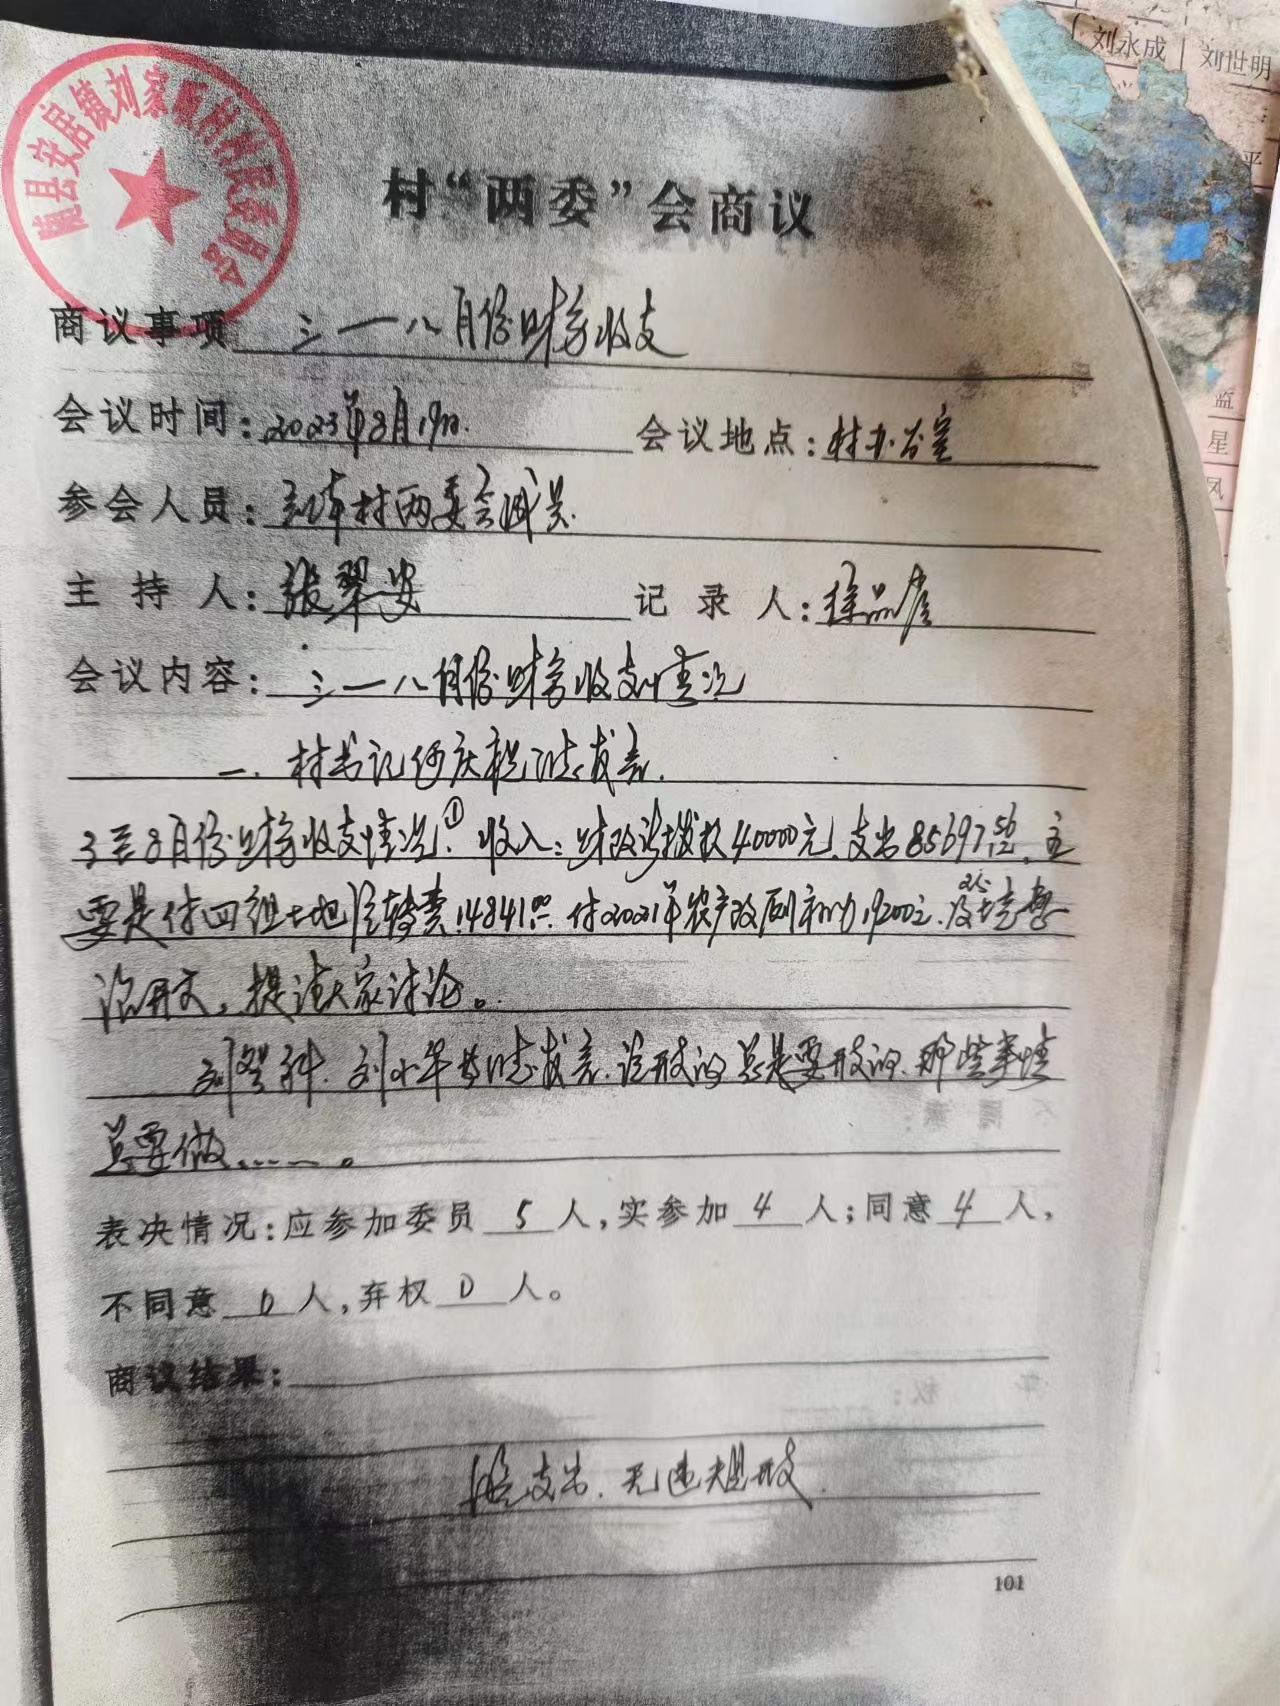 刘永成 刘世明
平
蓝
星
凤
随县安居镇刘家畈村村民委员会
村“两委”会商议
商议事项 三一八月份财务收支
会议时间：2023年8月19日. 会议地点：村办公室
参会人员：全体村两委会成员.
主持人：张翠安 记录人：徐品
会议内容：三一八月份财务收支情况
一. 村书记何庆 同志发言.
3至8月份财务收支情况.① 收入：财政 拨款40000元. 支出85697.56元. 主
要是付四组土地流转费14841.00. 付2021年农户改厕 19200元. 及
开支，提请大家讨论。
刘 科. 刘小军 同志发言. 该开支的总是要开支的. 那些事情
总要做……。
表决情况：应参加委员 5 人，实参加 4 人；同意 4 人，
不同意 0 人，弃权 0 人。
商议结果：
同意支出. 无违规开支.
101